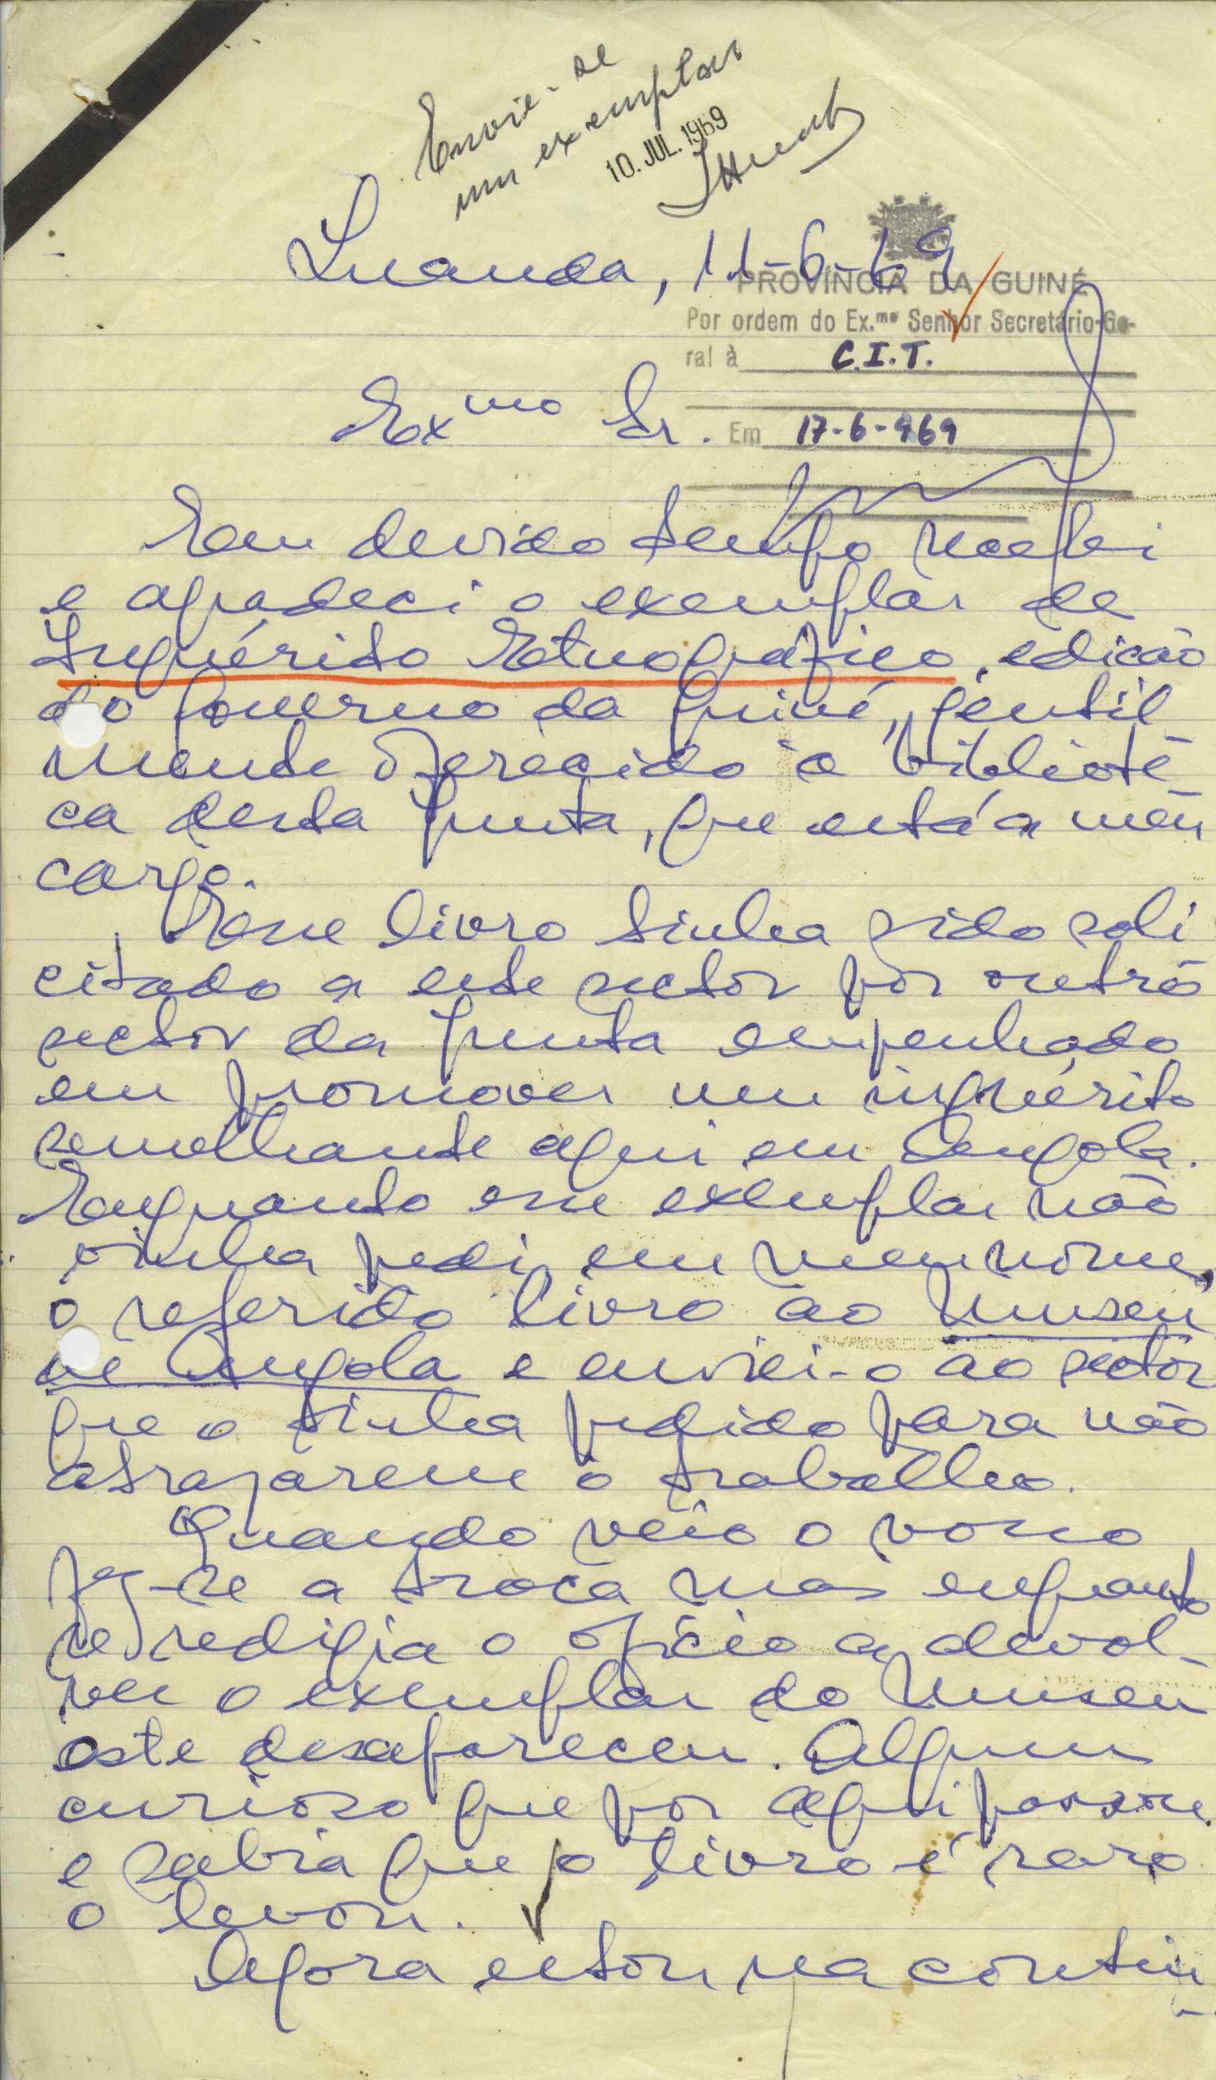 Envie-se
um exemplar
10. JUL. 1969
Luanda, 11-6-69
PROVÍNCIA DA GUINÉ
Por ordem do Ex.mo Senhor Secretário-Ge-
ral à C.I.T.
Exmo Sr.
Em 17-6-969
Em devido tempo recebi
e agradeci o exemplar de
Inquérito Etnográfico, edição
do Governo da Guiné, gentil
mente oferecido à bibliote
ca desta Junta, que está a meu
cargo.
Esse livro tinha sido soli
citado a este sector por outro
sector da Junta empenhado
em promover um inquérito
semelhante aqui em Angola.
Enquanto esse exemplar não
vinha pedi, em meu nome,
o referido livro ao Museu
de Angola e enviei-o ao sector
que o tinha pedido para não
atrazarem o trabalho.
Quando veio o vosso
fez-se a troca mas enquanto
se redigia o ofício a devol-
ver o exemplar do Museu
este desapareceu. Algum
curioso que por aqui passou
e sabia que o livro é raro
o levou.
Agora estou na contin